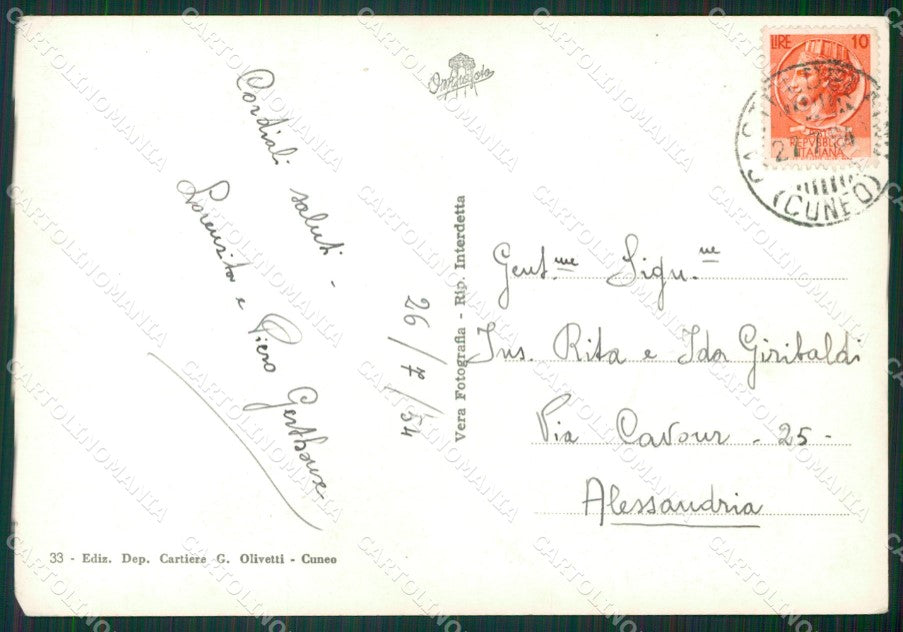 Cordiali saluti -
Lorenzita e Piero
26/7/54
Vera Fotografia - Rip. Interdetta
LIRE 10
REPVBBLICA
ITALIANA
27.7.54
(CUNEO)
Gent.me Sign.ne
Ins. Rita e Ida Giribaldi
Via Cavour - 25 -
Alessandria
33 - Ediz. Dep. Cartiere G. Olivetti - Cuneo
CARTOLINOMANIA